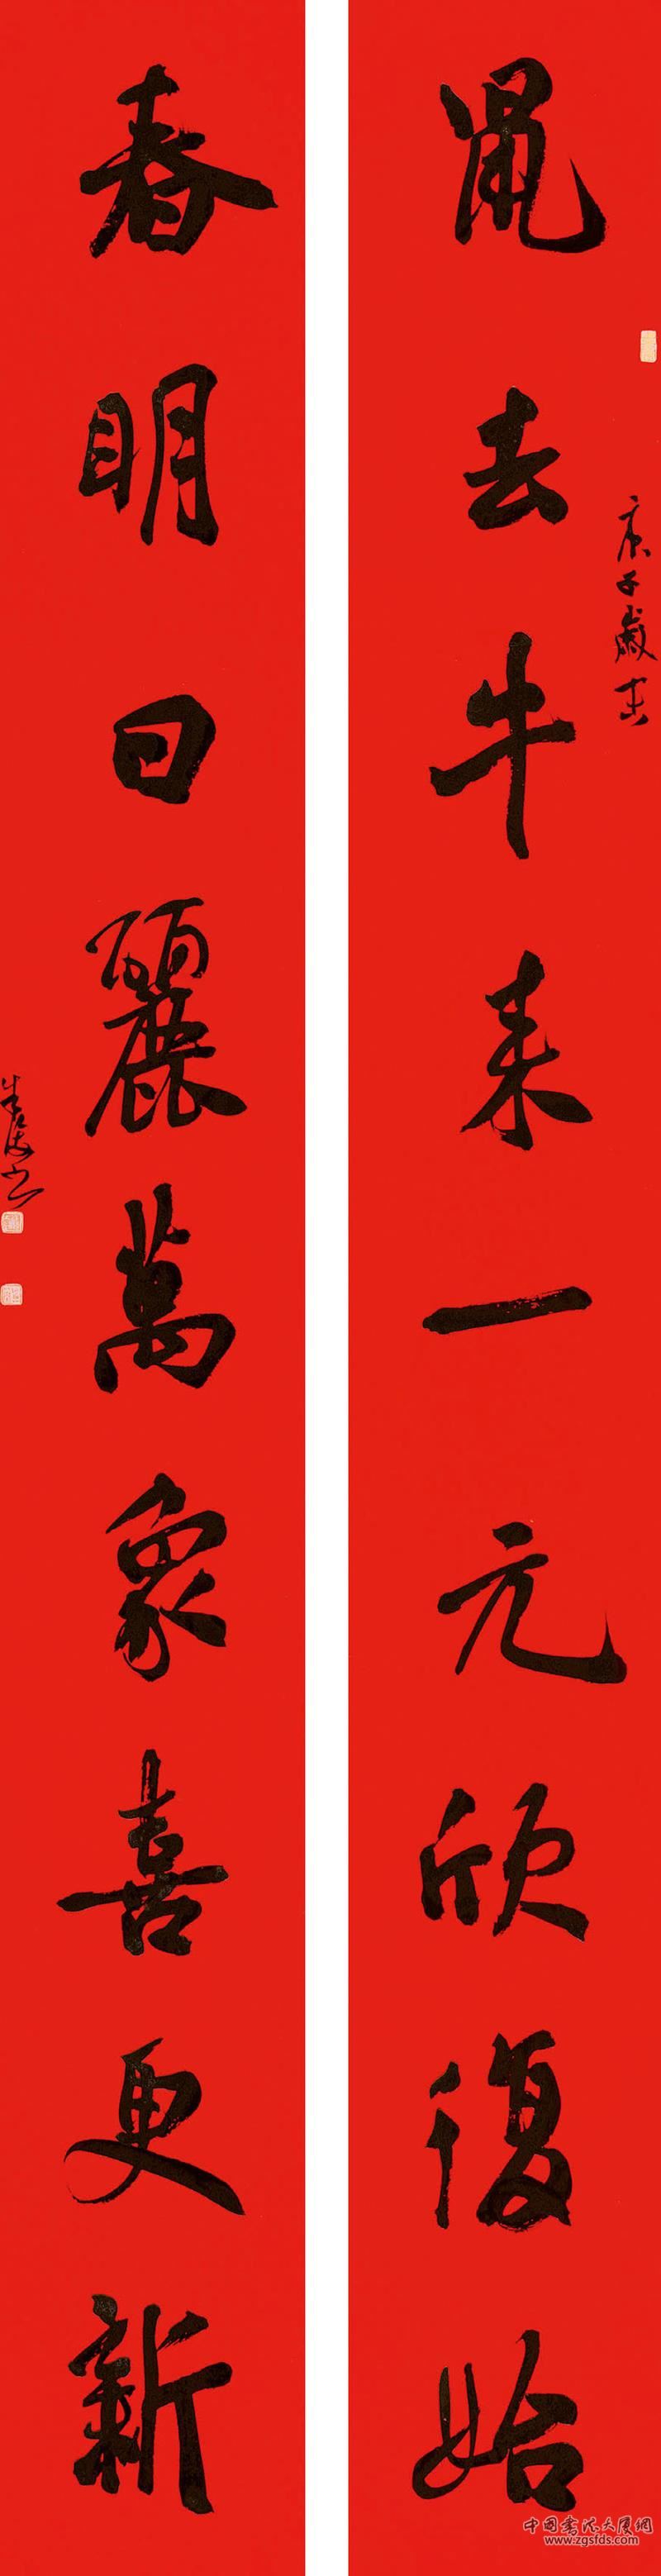 鼠去牛来一元欣復始
庚子歲末
春明日麗萬象喜更新
中國書法大廈網
www.zgsfds.com